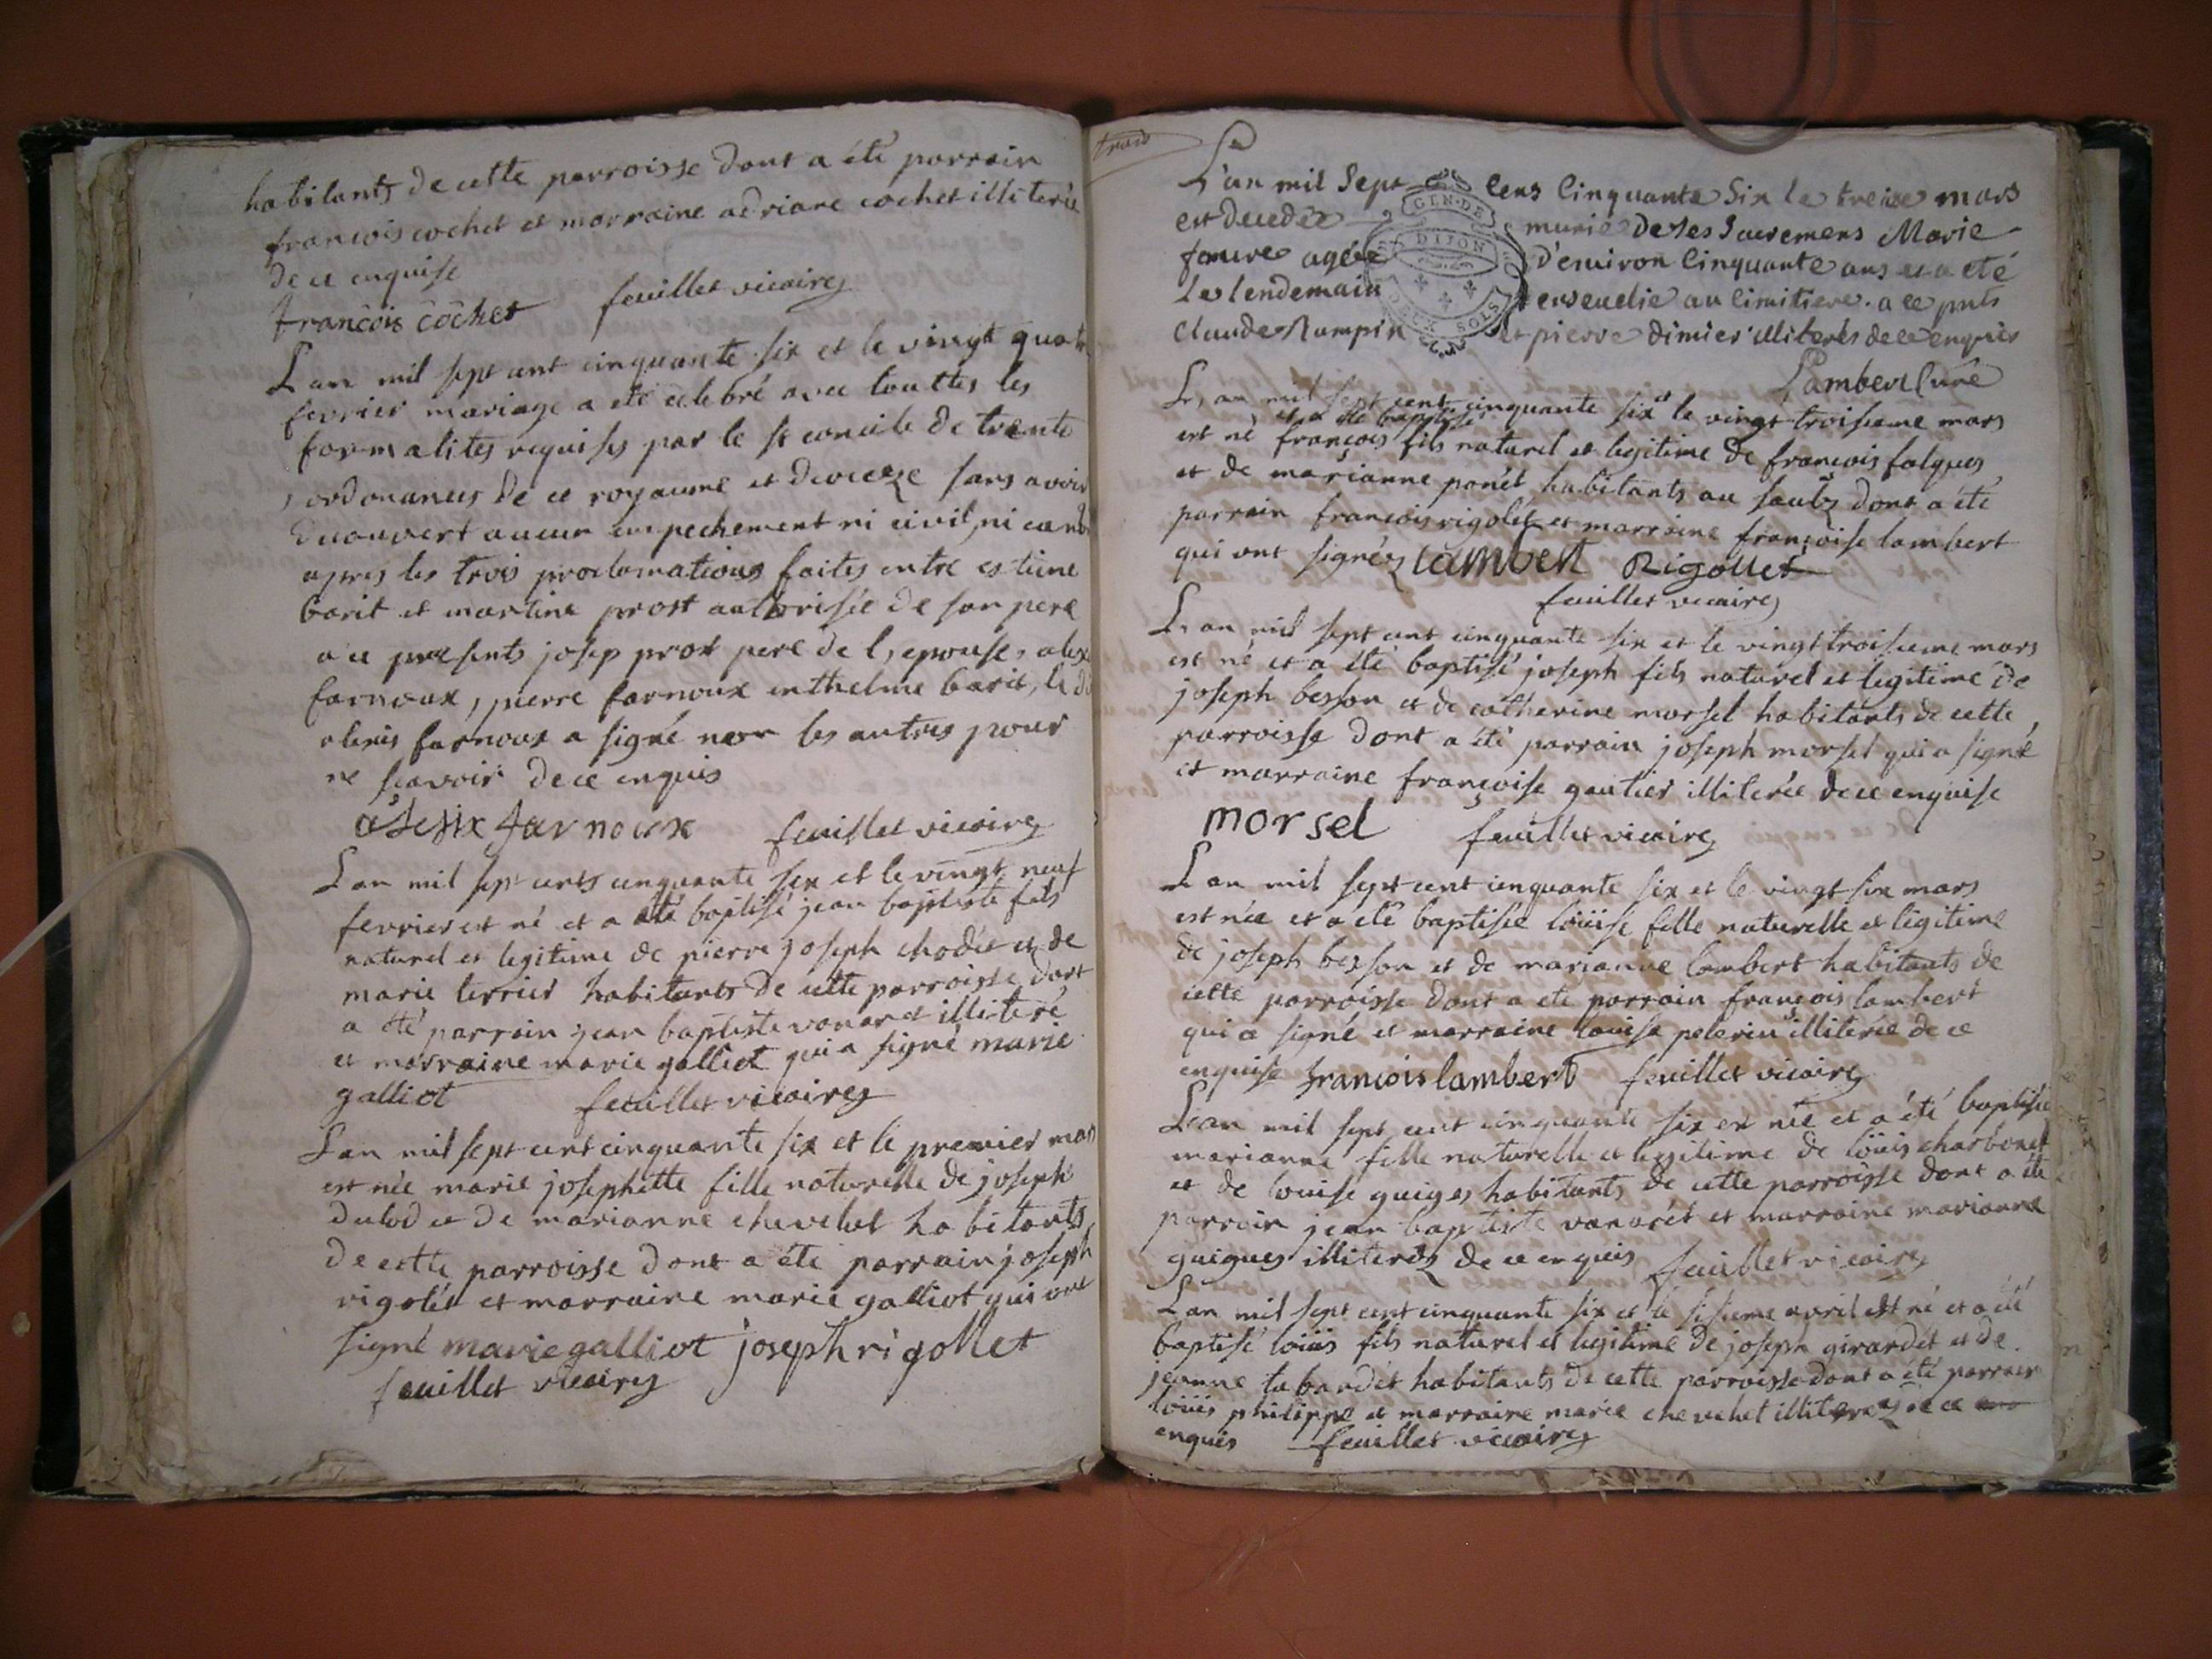 habitants de cette parroisse dont a été parrain
francois cochet et marraine adriane cochet illiterée
de ce enquise
francois cochet feuillet vicaire
L an mil sept cent cinquante six et le vingt quatr
fevrier mariage a eté celebré avec touttes les
formalites requises par le st concile de trente
ordonances de ce royaume et dioceze sans avoir
decouvert aucun empechement ni civil, ni cano
apres les trois proclamations faites entre estiene
barit et martine prost authorisée de son pere
a ce presents josep prost pere de l, epouse, alex
farnoux, pierre farnoux enthelme barit, le d
alexis farnoux a signé non les autres pour
ne scavoir de ce enquis
alesix farnoux feuillet vicaire
L an mil sept cents cinquante six et le vingt neuf
fevrier est né et a eté baptisé jean baptiste fils
naturel et legitime de pierre joseph chodét et de
marie terrier habitants de cette parroisse dont
a été parrain jean baptiste vanaret illiteré
et marraine marie galliot qui a signé marie
galliot feuillet vicaire
L an mil sept cent cinquante six et le premier mars
est née marie josephette fille naturelle de joseph
dulod et de marianne chevelut habitants
de cette parroisse dont a été parrain joseph
rigolét et marraine marie galliot qui ont
signé marie galliot joseph rigollet
feuillet vicaire
trois
L'an mil Sept Cens Cinquante Six le treize mars
est decedée munie de ses Sacremens Marie
favre agée D'environ Cinquante ans et a eté
Le lendemain ensevelie au Cimitiere. a ce pnts
Claude Rampin et pierre dimier illiterés de ce enquis
Lambert Curé
L, an mil sept cent cinquante six et le vingt troisieme mars
et a été baptisé
est né françois fils naturel et legitime de francois falques
et de marianne ponét habitants au saulz dont a été
parrain francois rigolet et marraine françoise lambert
qui ont signéz lambert Rigollet
feuillet vicaire
L, an mil sept cent cinquante six et le vingt troisieme mars
est né et a été baptisé joseph fils naturel et legitime de
joseph besson et de catherine morsel habitants de cette
parroisse dont a été parrain joseph morsel qui a signé
et marraine françoise gautier illiterée de ce enquise
morsel feuillet vicaire
L an mil sept cent cinquante six et le vingt six mars
est née et a eté baptisée loüise fille naturelle et legitime
de joseph besson et de marianne lambert habitants de
cette parroisse dont a eté parrain françois lambert
qui a signé et marraine louise pelerin illiterée de ce
enquise francois lambert feuillet vicaire
L an mil sept cent cinquante six est née et a été baptisée
marianne fille naturelle et legitime de loüis charbonet
et de louise guiges habitants de cette parroisse dont a été
parrain jean baptiste vanarét et marraine marianne
guigues illiteréz de ce enquis feuillet vicaire
L an mil sept cent cinquante six et le sisieme avril est né et a été
baptisé loüis fils naturel et legitime de joseph girardét et de
jeanne tabardét habitants de cette parroisse dont a été parrain
loüis philippe et marraine marie chevelut illiterez de ce
enquis feuillet vicaire
GEN. DE
DIJON